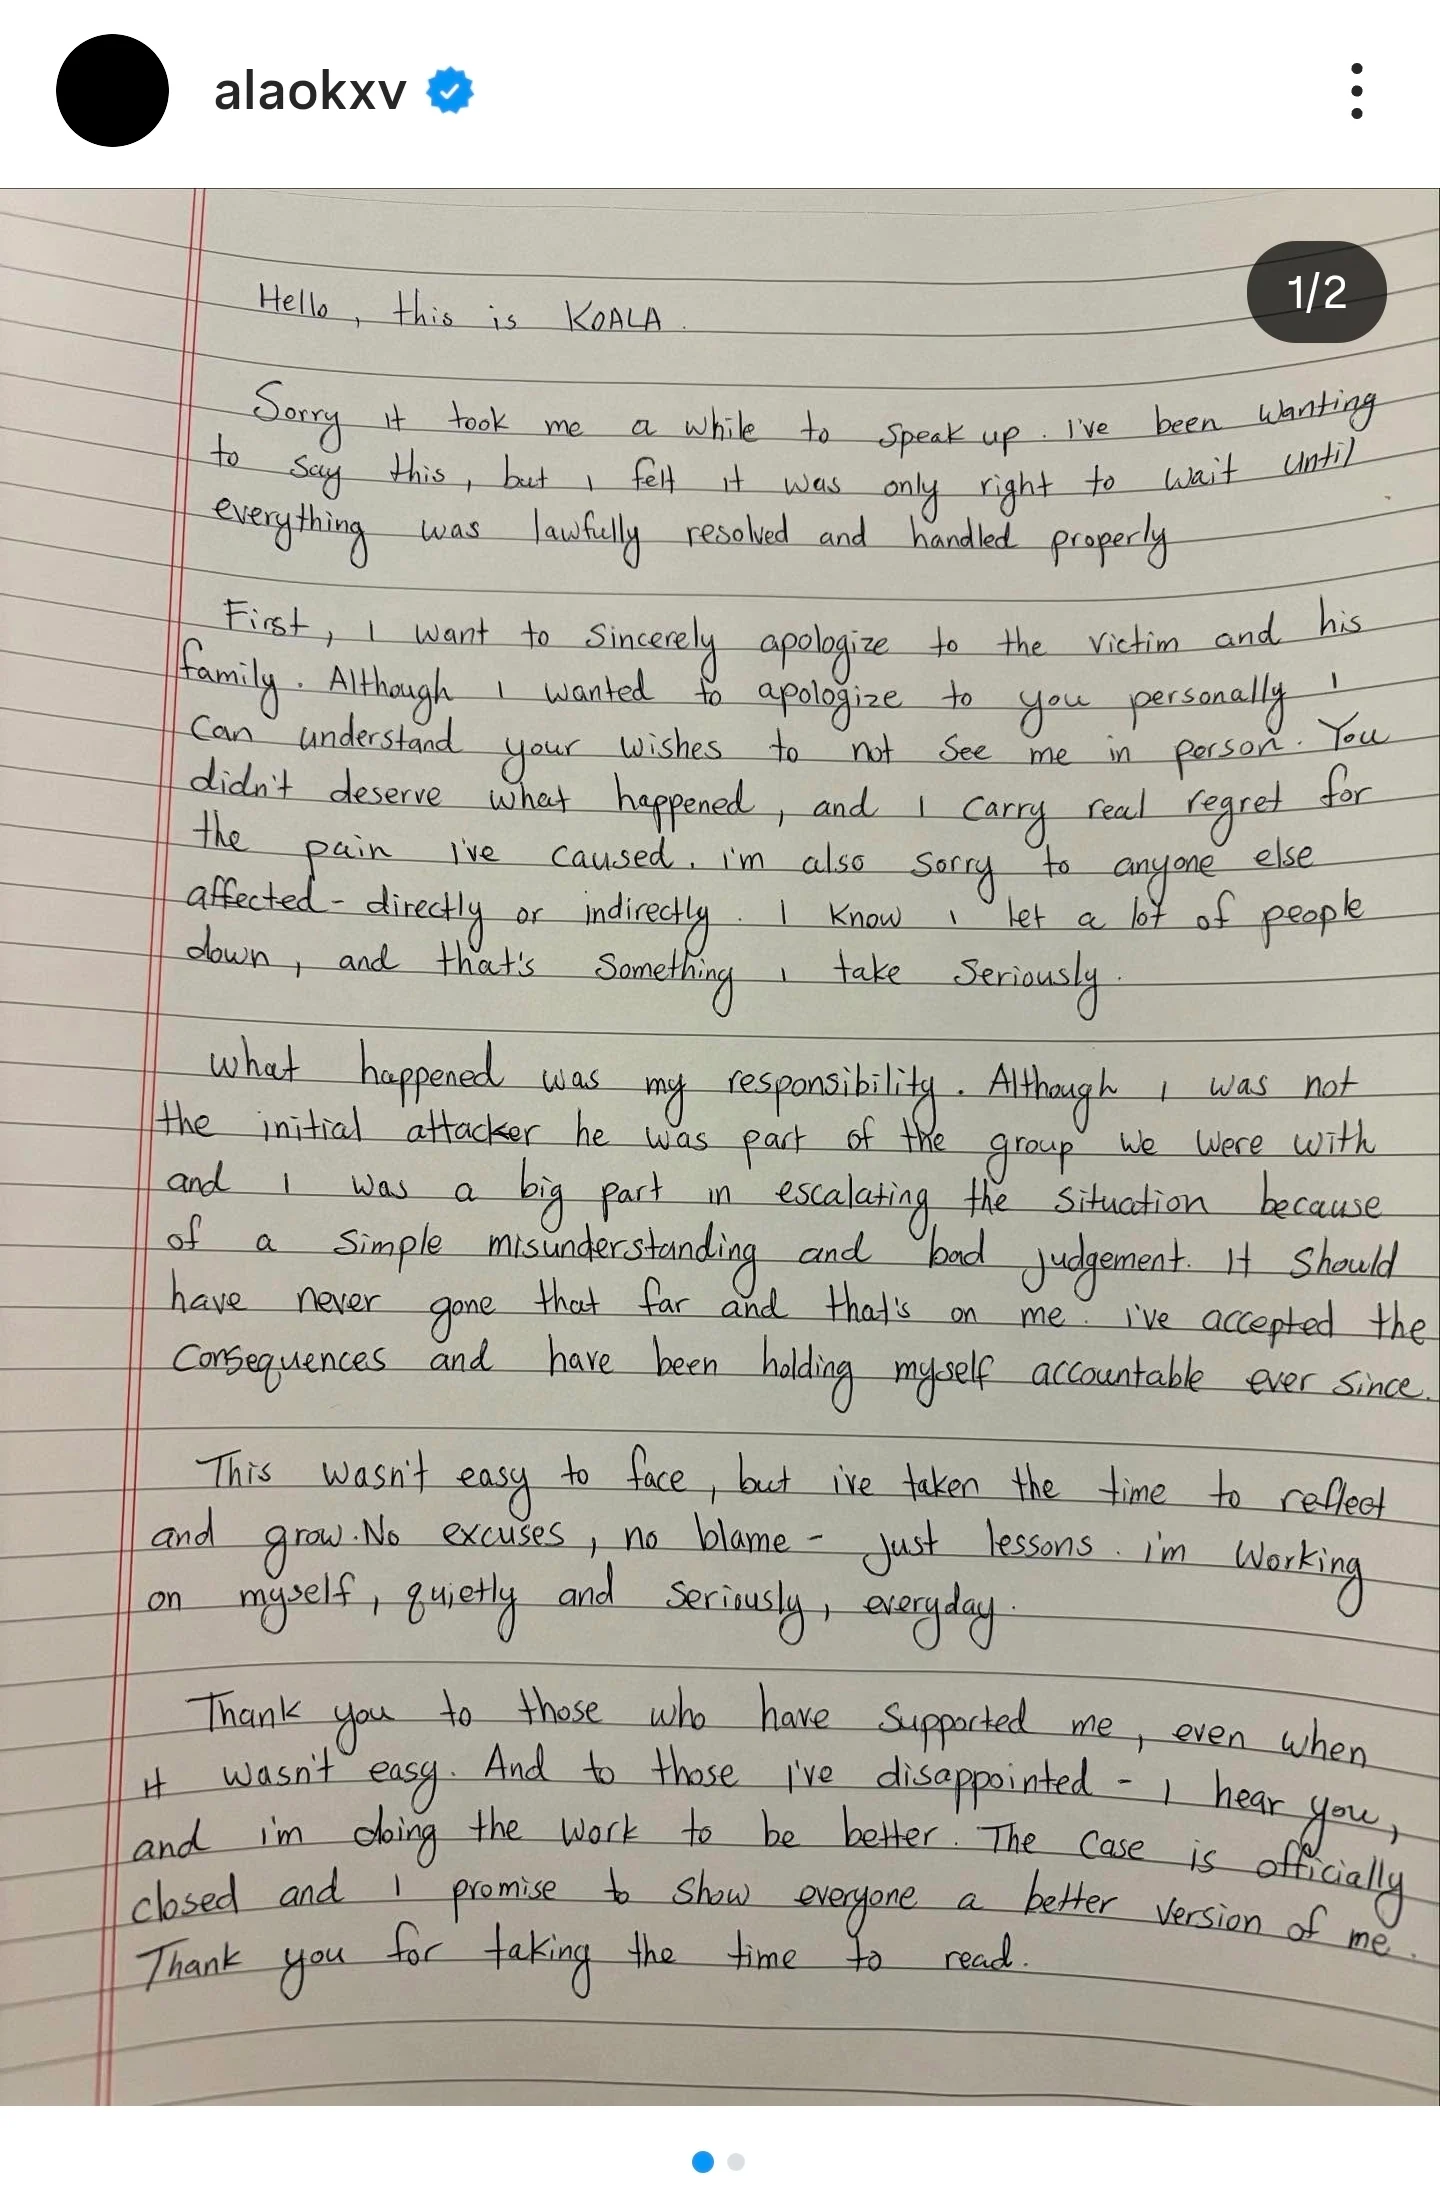 alaokxv
1/2
Hello, this is KOALA.
Sorry it took me a while to speak up. i've been wanting
to say this, but i felt it was only right to wait until
everything was lawfully resolved and handled properly
First, i want to sincerely apologize to the victim and his
family. Although i wanted to apologize to you personally i
can understand your wishes to not see me in person. You
didn't deserve what happened, and i carry real regret for
the pain i've caused. i'm also sorry to anyone else
affected - directly or indirectly. I know i let a lot of people
down, and that's something i take seriously.
What happened was my responsibility. Although i was not
the initial attacker he was part of the group we were with
and i was a big part in escalating the situation because
of a simple misunderstanding and bad judgement. It should
have never gone that far and that's on me. i've accepted the
consequences and have been holding myself accountable ever since.
This wasn't easy to face, but i've taken the time to reflect
and grow. No excuses, no blame - just lessons. i'm working
on myself, quietly and seriously, everyday.
Thank you to those who have supported me, even when
it wasn't easy. And to those i've disappointed - i hear you,
and i'm doing the work to be better. The case is officially
closed and i promise to show everyone a better version of me.
Thank you for taking the time to read.